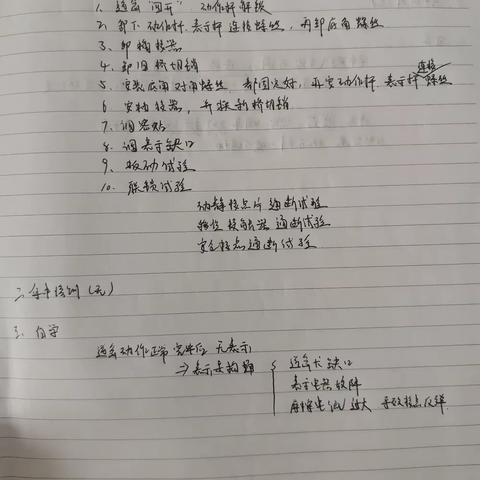 1. 道岔"四开", 动作杆解锁
2. 卸下动作杆.表示杆连接螺丝, 再卸尼角螺丝
3. 卸转辙器
4. 卸旧挤切销
5. 安装尼角对角螺丝, 都固定好, 再安动作杆 表示杆连接螺丝
6. 安转辙器, 并换新挤切销
7. 调密贴
8. 调表示缺口
9. 扳动试验
10. 联锁试验
动静接点片通断试验
移位接触器通断试验
安全接点通断试验
二. 培训(无)
三. 自学
道岔动作正常完毕后 无表示
→表示是构障
道岔大缺口
表示电路故障
摩擦电流过大 导致接点反弹